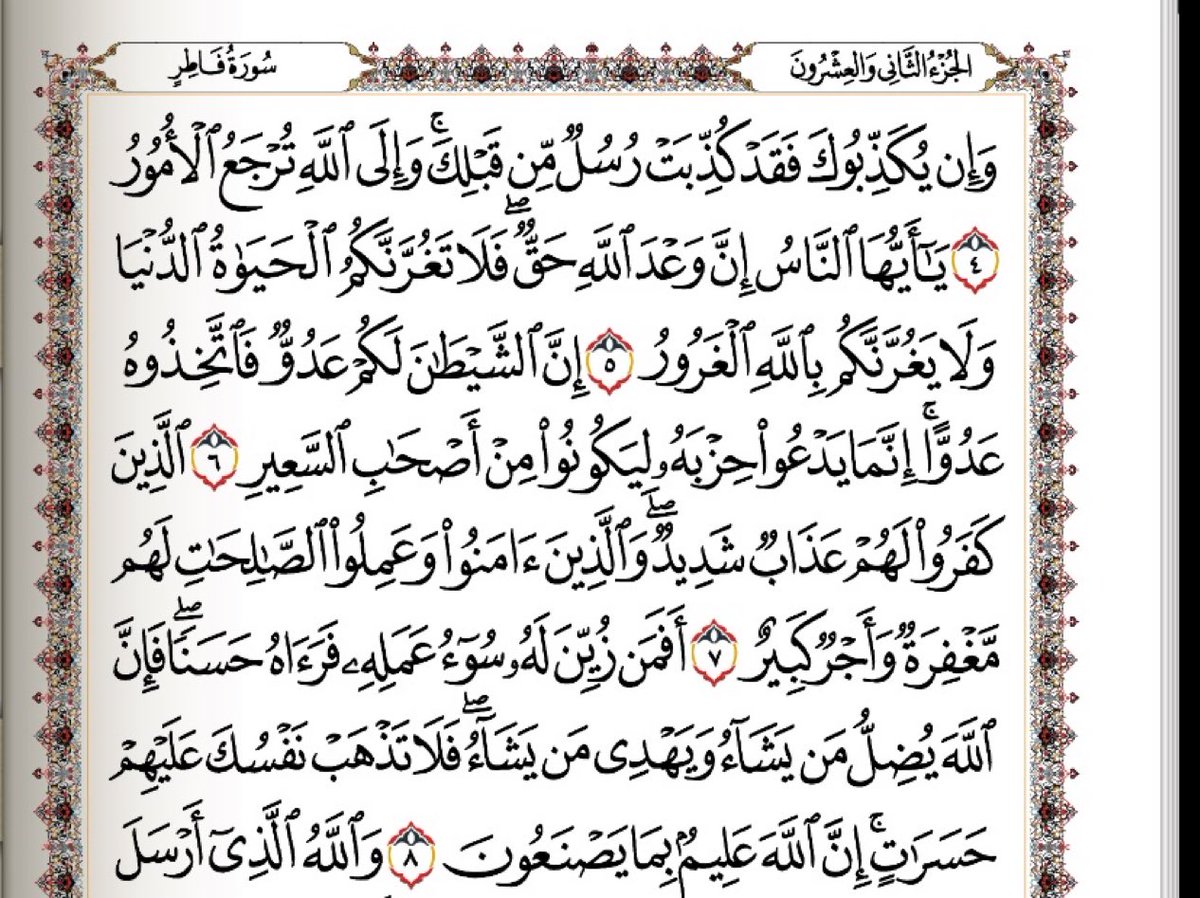 الجُزْءُ الثَّانِى وَالعِشْرُونَ
سُورَةُ فَاطِرٍ
وَإِن يُكَذِّبُوكَ فَقَدْ كُذِّبَتْ رُسُلٌ مِّن قَبْلِكَۚ وَإِلَى ٱللَّهِ تُرْجَعُ ٱلْأُمُورُ
٤ يَـٰٓأَيُّهَا ٱلنَّاسُ إِنَّ وَعْدَ ٱللَّهِ حَقٌّۖ فَلَا تَغُرَّنَّكُمُ ٱلْحَيَوٰةُ ٱلدُّنْيَا
وَلَا يَغُرَّنَّكُم بِٱللَّهِ ٱلْغَرُورُ ٥ إِنَّ ٱلشَّيْطَـٰنَ لَكُمْ عَدُوٌّ فَٱتَّخِذُوهُ
عَدُوًّاۚ إِنَّمَا يَدْعُوا۟ حِزْبَهُۥ لِيَكُونُوا۟ مِنْ أَصْحَـٰبِ ٱلسَّعِيرِ ٦ ٱلَّذِينَ
كَفَرُوا۟ لَهُمْ عَذَابٌ شَدِيدٌۖ وَٱلَّذِينَ ءَامَنُوا۟ وَعَمِلُوا۟ ٱلصَّـٰلِحَـٰتِ لَهُم
مَّغْفِرَةٌ وَأَجْرٌ كَبِيرٌ ٧ أَفَمَن زُيِّنَ لَهُۥ سُوٓءُ عَمَلِهِۦ فَرَءَاهُ حَسَنًاۖ فَإِنَّ
ٱللَّهَ يُضِلُّ مَن يَشَآءُ وَيَهْدِى مَن يَشَآءُۖ فَلَا تَذْهَبْ نَفْسُكَ عَلَيْهِمْ
حَسَرَٰتٍۚ إِنَّ ٱللَّهَ عَلِيمٌۢ بِمَا يَصْنَعُونَ ٨ وَٱللَّهُ ٱلَّذِىٓ أَرْسَلَ